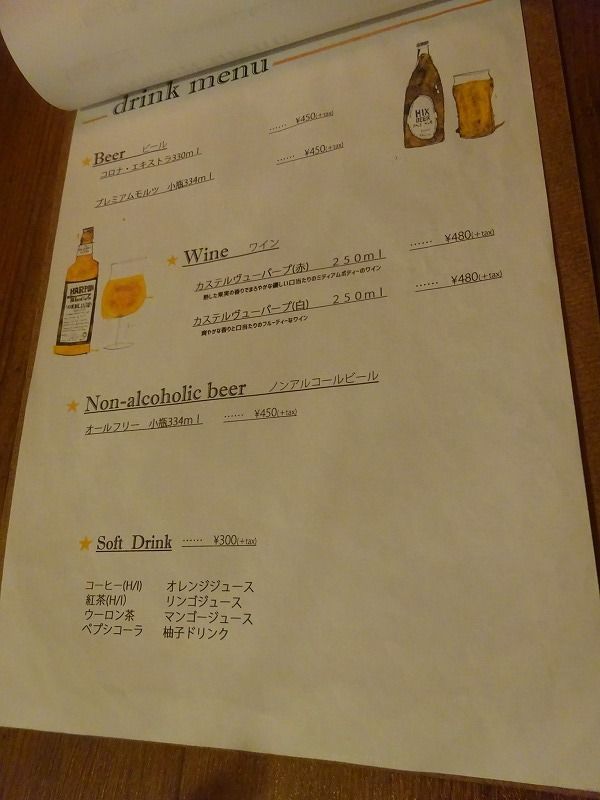 drink menu
Beer ビール
コロナ・エキストラ330ml ...... ¥450(+tax)
プレミアムモルツ 小瓶334ml ...... ¥450(+tax)
MIX
BEER
Wine ワイン
カステルヴューパープ(赤) 250ml ...... ¥480(+tax)
熟した果実の香りでまろやかな優しい口当たりのミディアムボディーのワイン
カステルヴューパープ(白) 250ml ...... ¥480(+tax)
爽やかな香りと口当たりのフルーティーなワイン
Non-alcoholic beer ノンアルコールビール
オールフリー 小瓶334ml ...... ¥450(+tax)
Soft Drink ...... ¥300(+tax)
コーヒー(H/I) オレンジジュース
紅茶(H/I) リンゴジュース
ウーロン茶 マンゴージュース
ペプシコーラ 柚子ドリンク